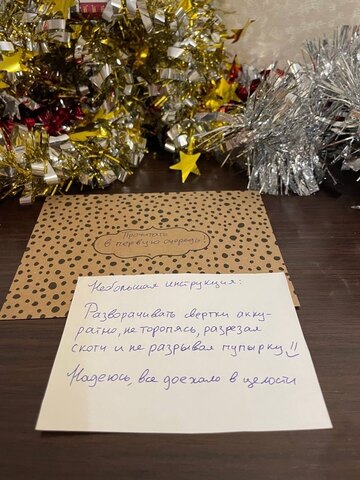 Прочитать
в первую очередь!
Небольшая инструкция:
Разворачивать свертки акку-
ратно, не торопясь, разрезая
скотч и не разрывая пупырку!!
Надеюсь, все доехало в целости